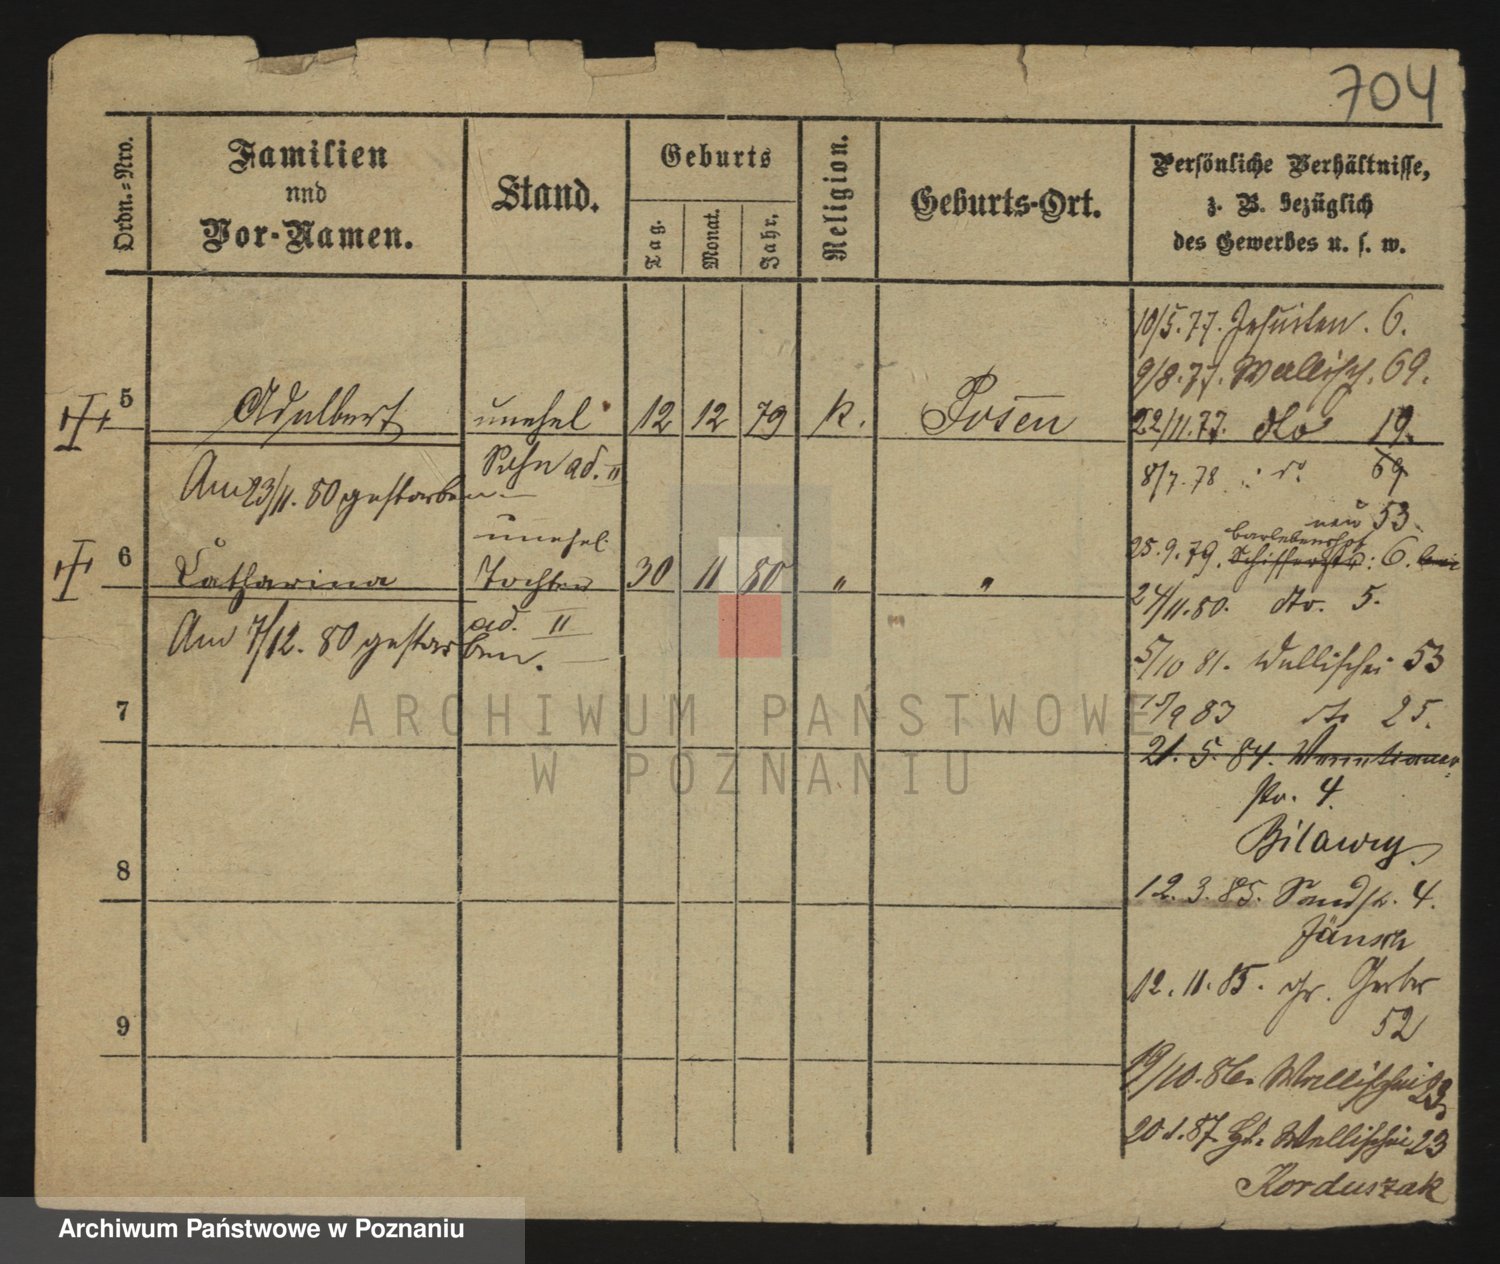 704
Ordn.=Nro.
Familien
und
Vor-Namen.
Stand.
Geburts
Tag.
Monat.
Jahr.
Religion.
Geburts-Ort.
Persönliche Verhältnisse,
z. B. bezüglich
des Gewerbes u. s. w.
10/5.77. Jesuiten. 6.
9/8.77. Wallisch. 69.
5 Adalbert unehel 12 12 79 k. Posen
22/11.77. dto 19.
Sohn ad. II
Am 23/11. 80 gestorben
8/7.78 do 69
neu 53.
unehel.
Barlebenshof
25.9.79. 6.
6 Catharina Tochter 30 11 80 " "
24/11.80. dto. 5.
ad. II
Am 7/12. 80 gestorben.
5/10 81. Wallischei 53
7
9 83 dto 25.
21. 5. 84. Venetianer
str. 4.
8
Bilawy
12. 3. 85. Sandstr. 4.
Jänsch
12. 11. 85. gr. Gerber
9
52
19/10. 86. Wallischei 23
20 1. 87. Wallischei 23
Korduszak
ARCHIWUM PAŃSTWOWE
W POZNANIU
Archiwum Państwowe w Poznaniu